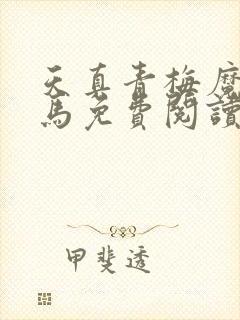 天真青梅魔
馬免費閱讀
甲斐透